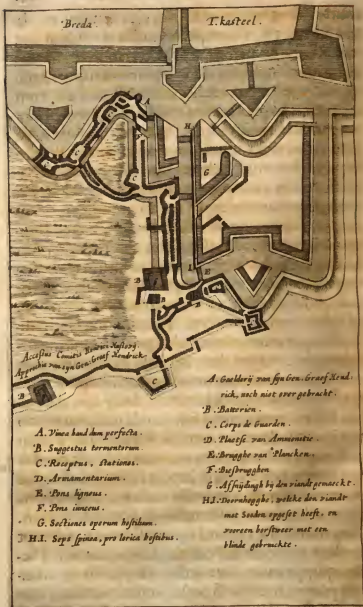 Breda.
T. kasteel.
A
H
G
B
E
C
B
Accessus Comitis Henrici
Approchie van sijn Gen. Graef Hendrick.
A. Vinea haud dum perfecta.
B. Suggestus tormentorum
C. Receptus, stationes.
D. Armamentarium.
E. Pons ligneus.
F. Pons iunceus.
G. Sectiones operum hostium.
H.I. Seps spinea, pro lorica hostibus.
A. Gaelderij van sijn Gen. Graef Hend-
rick, noch niet over gebracht.
B. Batterien.
C. Corps de Guarden.
D. Plaetse van Ammonitie.
E. Brugghe van Plancken.
F. Biesbrugghen
G. Affnijdingh bij den viandt gemaeckt.
H.I. Doornhegghe, welcke den viandt
met Sooden opgeset heeft, en
voor een borstweer met een
blinde gebruickte.